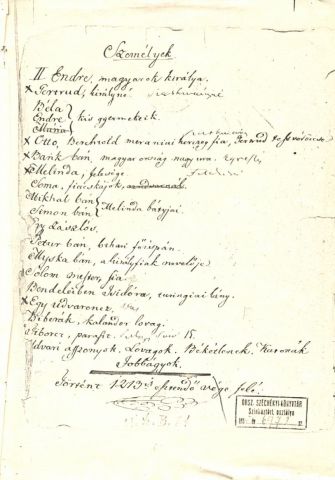 Személyek
II Endre, magyarok királya.
x Gertrud, királyné.
Béla
Endre } kis gyermekeik.
Maria
x Otto, Berchtold meraniai herczeg fia, Gertrud
x Bánk bán, magyarország nagyura.
x Melinda, felesége
Soma, fiacskájok,
Mikhál bán } Melinda bátyjai.
Simon bán
Egy Zászlós.
Petur bán, bihari főispán.
Myska bán, a királyfiak nevelője
Sólom mester, fia.
Bendeleiben Izidóra, turingiai lány.
x Egy udvaronc
Biberák, kalandor lovag.
Tiborcz, paraszt. 15.
Udvari asszonyok. Lovagok. Békétlenek. Katonák
Jobbágyok.
Történt 1213 esztendő vége felé.
ORSZ. SZÉCHÉNYI-KÖNYVTÁR
Színháztört. osztálya